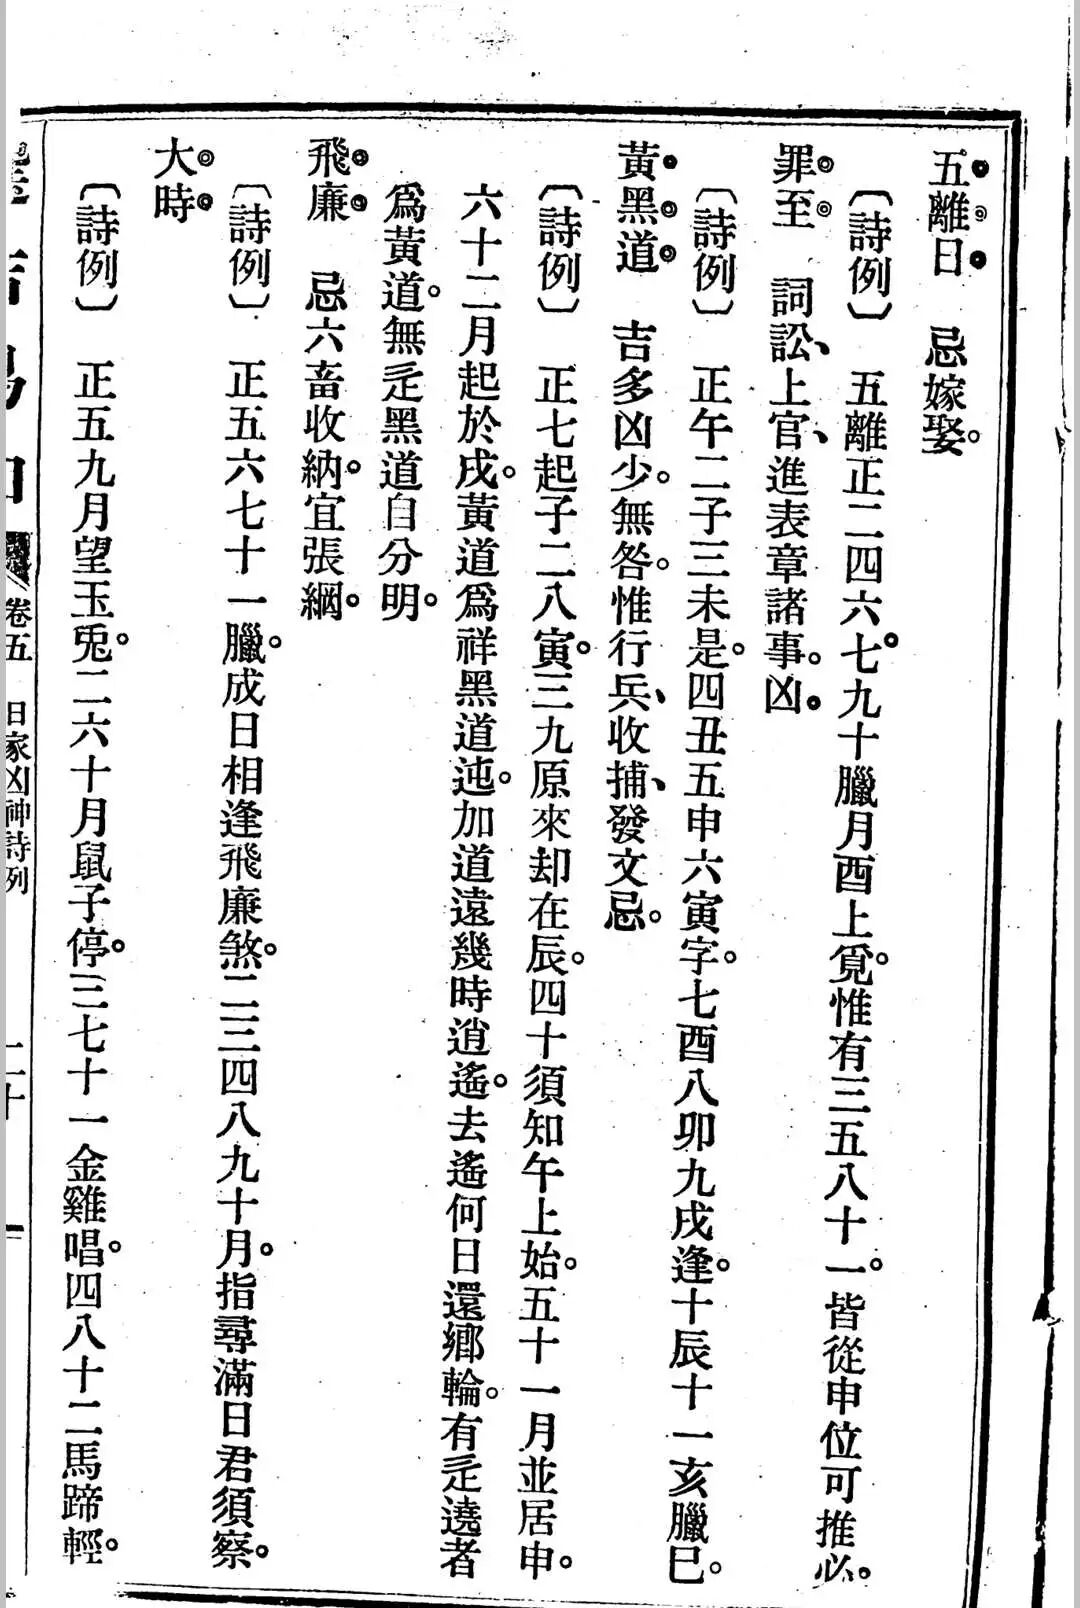 五離日　忌嫁娶。
〔詩例〕　五離正二四六七。九十臘月酉上覓。惟有三五八十一。皆從申位可推必。
罪至　詞訟、上官、進表章諸事。凶。
〔詩例〕　正午二子三未是。四丑五申六寅字。七酉八卯九戌逢。十辰十一亥臘巳。
黃黑道　吉多凶少。無咎。惟行兵、收捕、發文忌。
〔詩例〕　正七起子二八寅。三九原來却在辰。四十須知午上始。五十一月並居申。
六十二月起於戌。黃道爲祥黑道迍。加道遠幾時逍遙。去遙何日還鄉輪。有辵遶者
爲黃道。無辵黑道自分明。
飛廉　忌六畜收納。宜張綱。
〔詩例〕　正五六七十一臘。成日相逢飛廉煞。二三四八九十月。指尋滿日君須察。
大時
〔詩例〕　正五九月望玉兎。二六十月鼠子停。三七十一金雞唱。四八十二馬蹄輕。
卷五　日家凶神詩例